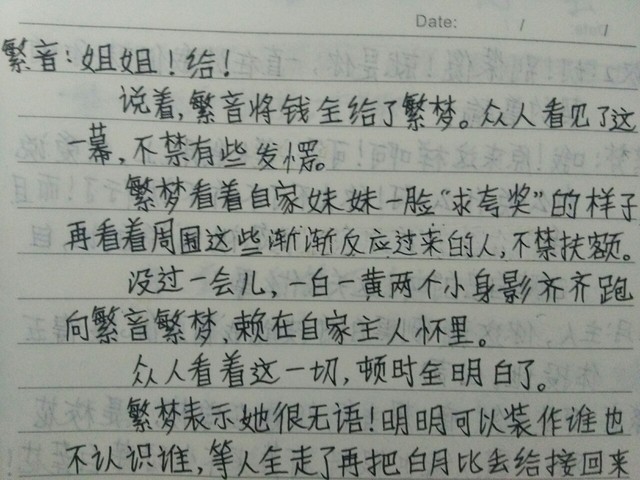 Date: / /
繁音：姐姐！给！
说着，繁音将钱全给了繁梦。众人看见了这
一幕，不禁有些发愣。
繁梦看着自家妹妹一脸“求夸奖”的样子
再看着周围这些渐渐反应过来的人，不禁扶额。
没过一会儿，一白一黄两个小身影齐齐跑
向繁音繁梦，赖在自家主人怀里。
众人看着这一切，顿时全明白了。
繁梦表示她很无语！明明可以装作谁也
不认识谁，等人全走了再把白月比去给接回来